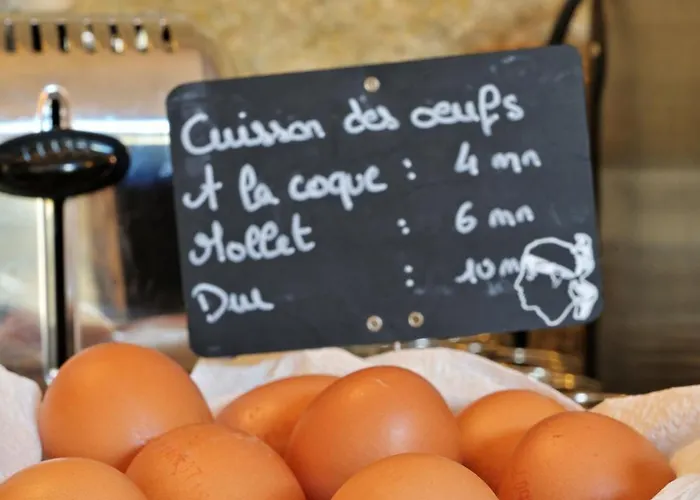 Cuisson des oeufs
A la coque : 4 mn
Mollet : 6 mn
Dur : 10 mn